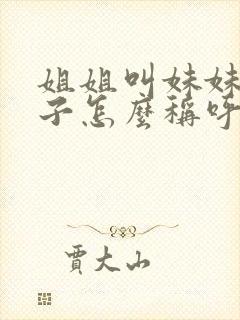 姐姐叫妹妹
子怎麼稱呼
賈大山